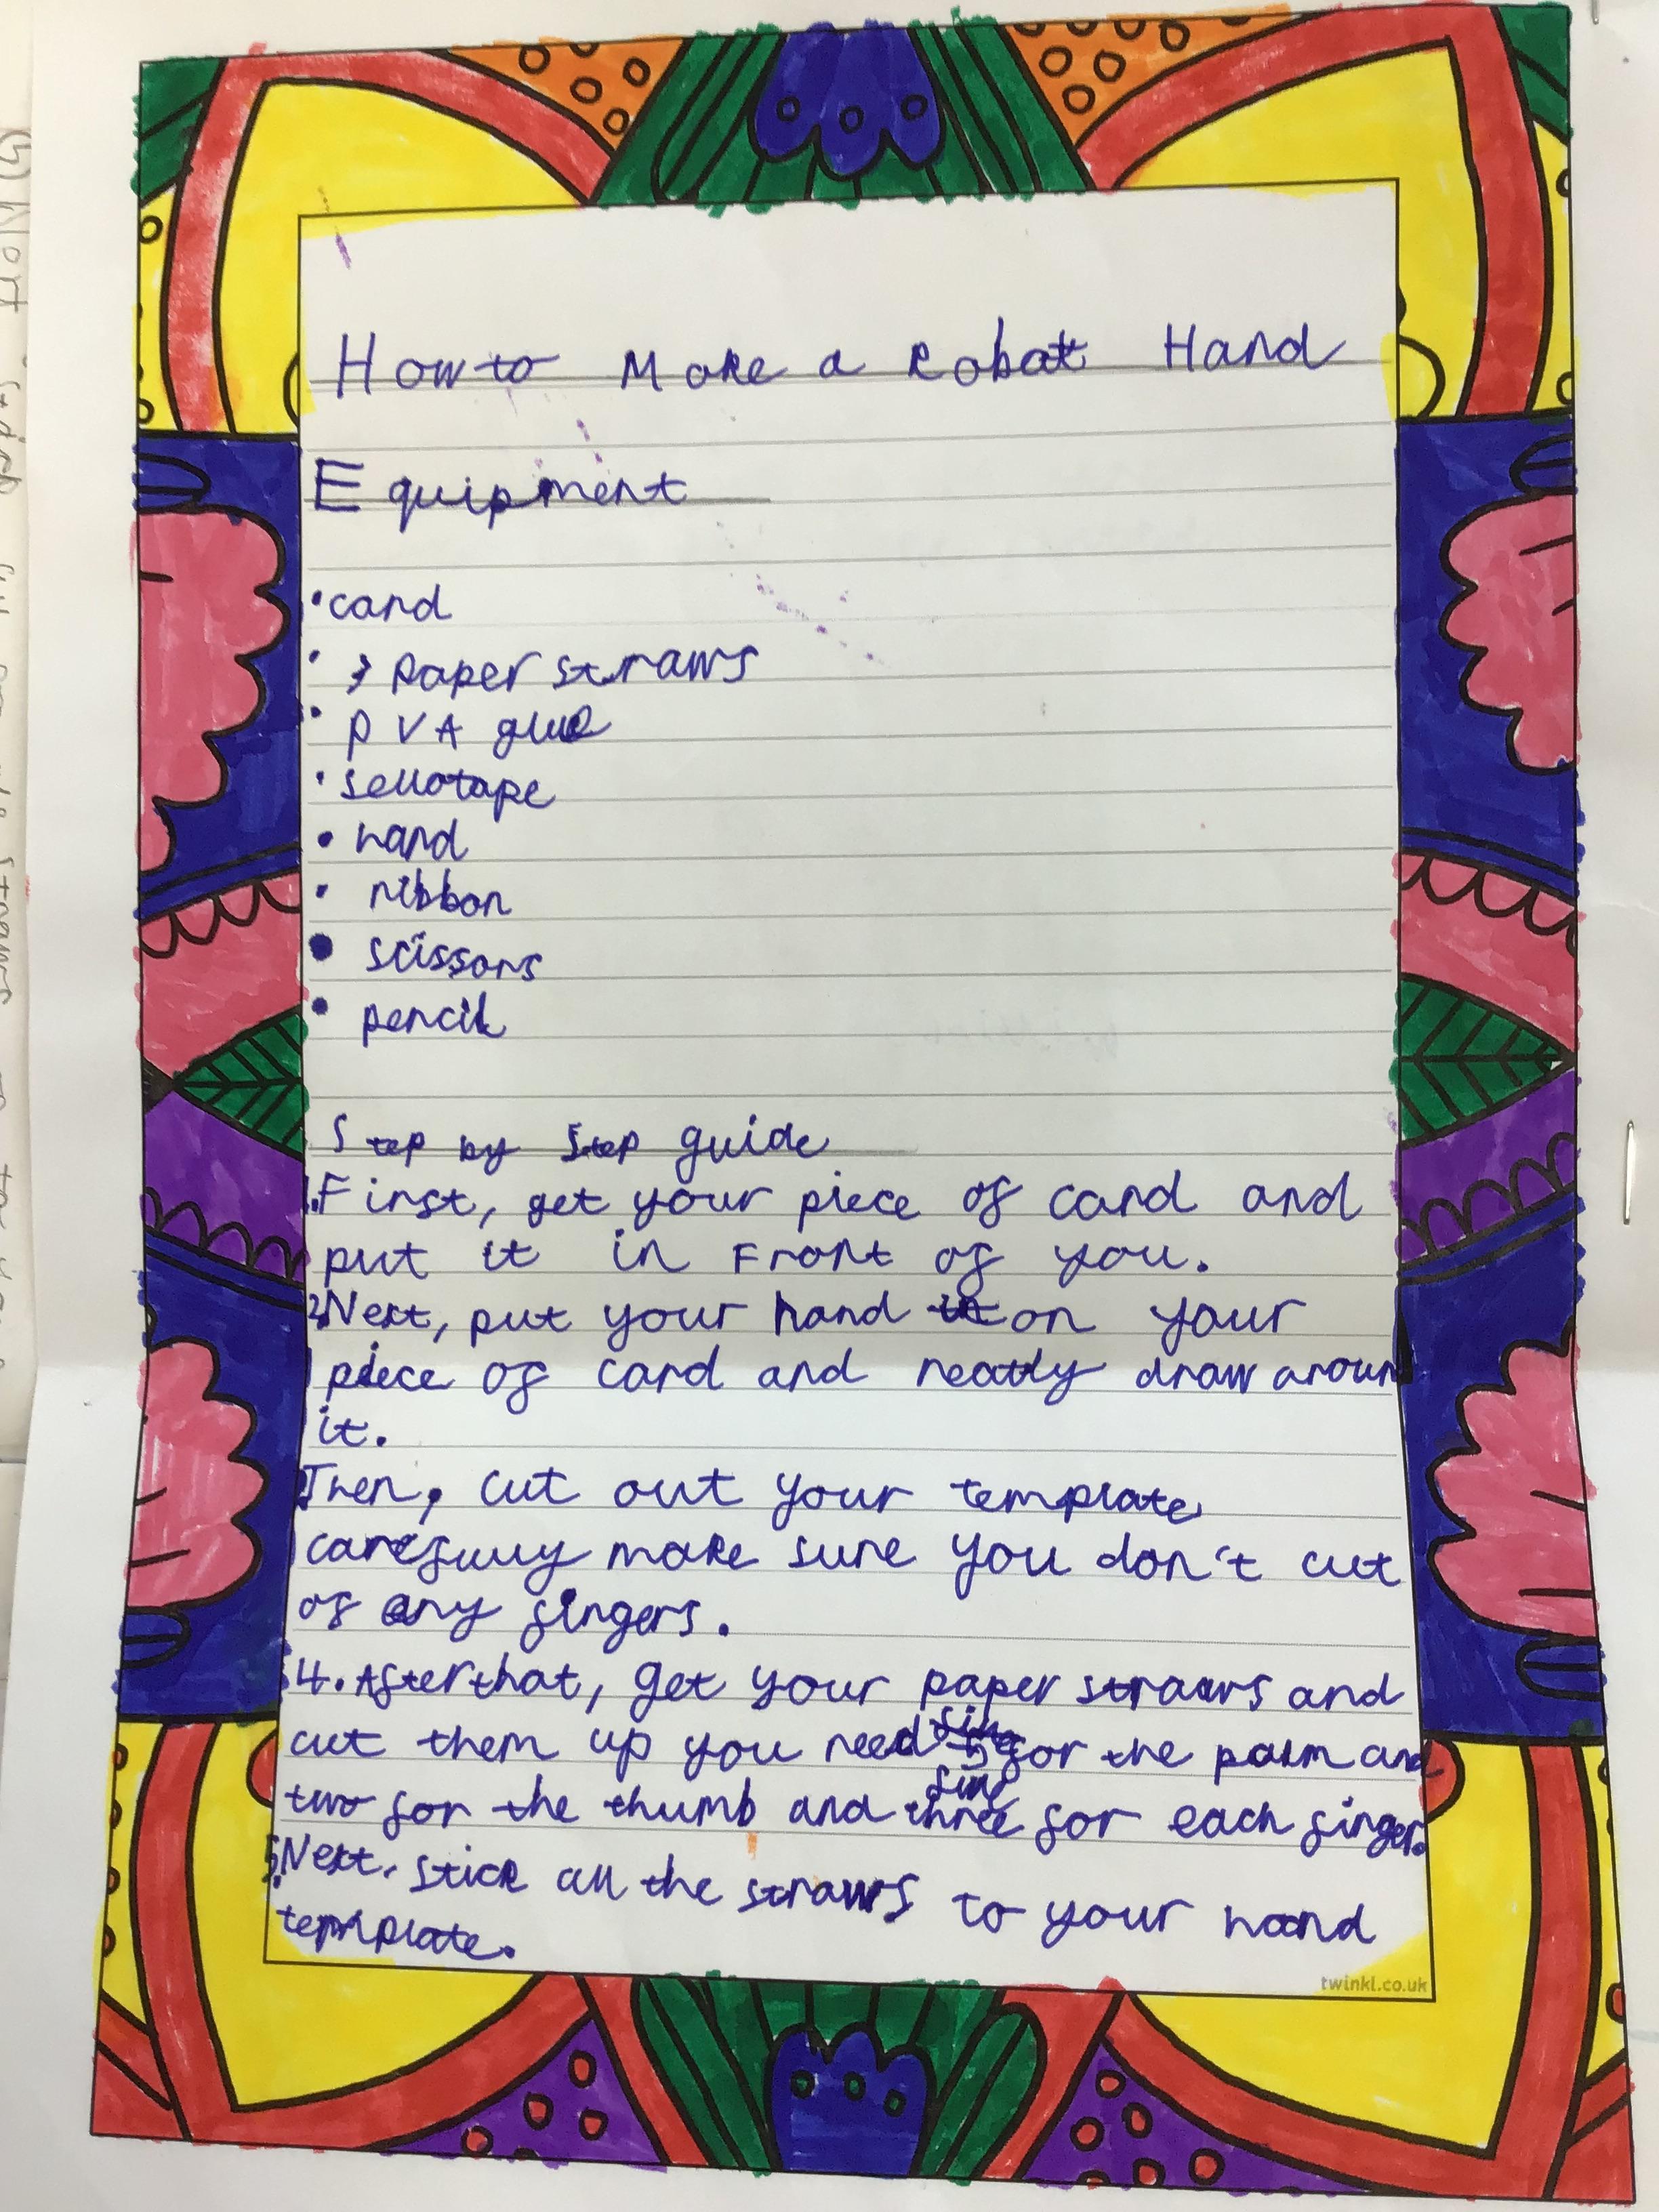 How to Make a Robot Hand
Equipment
• card
• 7 paper straws
• PVA glue
• sellotape
• hand
• ribbon
• scissors
• pencil
Step by Step guide
1. First, get your piece of card and
put it in Front of you.
2. Next, put your hand on your
piece of card and neatly draw aroun
it.
Then, cut out your template
carefully make sure you don't cut
of any fingers.
4. After that, get your paper straws and
cut them up you need for the palm and
two for the thumb and three for each finger.
5. Next, stick all the straws to your hand
template.
twinkl.co.uk